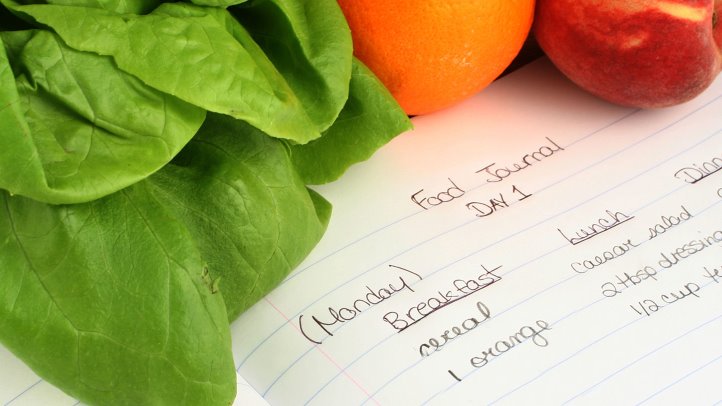 Food Journal
DAY 1
(Monday)
Breakfast
cereal
1 orange
Lunch
caesar salad
2 tbsp dressing
1/2 cup